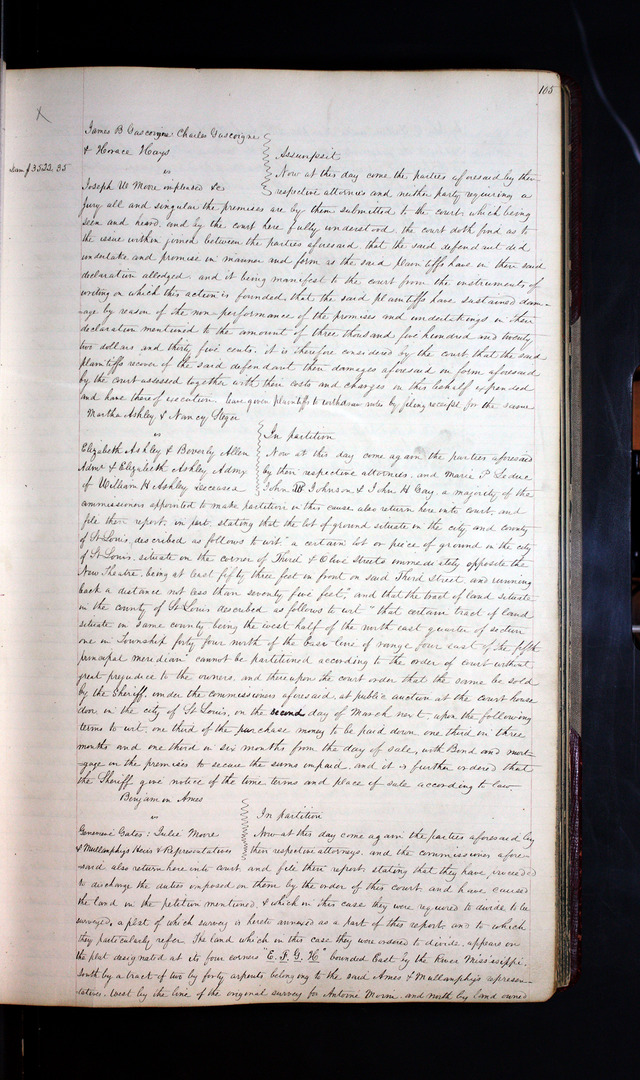 105
James B Gascoigne Charles Gascoigne
& Horace Hays
vs
Joseph W Moore impleaded &c
Assumpsit
Now at this day come the parties aforesaid by their
respective attornies and neither party requiring a
$3522.35
jury all and singular the premises are by them submitted to the court which being
seen and heard and by the court here fully understood the court doth find as to
the issue within joined between the parties aforesaid that the said defendant did
undertake and promise in manner and form as the said plaintiffs have in their said
declaration alledged. and it being manifest to the court from the instruments of
writing on which this action is founded, that the said plaintiffs have sustained dam-
-age by reason of the non performance of the promises and undertakings in their
declaration mentioned to the amount of three thousand five hundred and twenty
two dollars and thirty five cents. it is therefore considered by the court that the said
plaintiffs recover of the said defendant their damages aforesaid in form aforesaid
by the court assessed together with their costs and charges in this behalf expended
and have thereof execution. leave given plaintiffs to withdraw note by filing receipt for the same
Martha Ashley & Nancy Steger
vs
Elizabeth Ashley & Beverly Allen
Admr & Elizabeth Ashley Admx
of William H Ashley deceased
In partition
Now at this day come again the parties aforesaid
by their respective attornies. and Marie P Leduc
John W Johnson & John H Gay, a majority of the
commissioners appointed to make partition in this cause also return here into court, and
file their report, in part, stating that the lot of ground situate in the city and county
of St Louis, described as follows to wit "a certain lot or piece of ground in the city
of St Louis. situate on the corner of Third & Olive Streets immediately opposite the
New Theatre, being at least fifty three feet in front on said Third street, and running
back a distance not less than seventy five feet," and that the tract of land situate
in the county of St Louis described as follows to wit "that certain tract of land
situate in same county being the west half of the north east quarter of section
one in Township forty four north of the base line of range four east of the fifth
principal meridian" cannot be partitioned according to the order of court without
great prejudice to the owners. and thereupon the court order that the same be sold
by the Sheriff. under the commissioners aforesaid at public auction at the court house
door in the city of St Louis, on the second day of March next, upon the following
terms to wit, one third of the purchase money to be paid down one third in three
months and one third in six months from the day of sale, with Bond and mort-
-gage on the premises to secure the sums unpaid. and it is further ordered that
the Sheriff give notice of the time terms and place of sale according to law
Benjamin Ames
vs
Genevieve Gates: Julie Moore
& Mullanphy's Heirs & Representatives
In partition
Now at this day come again the parties aforesaid by
their respective attorneys. and the commissioner afore-
-said also return here into court and file their report stating that they have, proceeded
to discharge the duties imposed on them by the order of this court and have caused
the land in the petition mentioned, & which in this case they were required to divide, to be
surveyed, a plat of which survey is hereto annexed as a part of this report and to which
they particularly refer. The land which in this case they were ordered to divide, appears on
the plat designated at its four corners "E. F. G. H" bounded East by the River Mississippi.
South by a tract of two by forty arpents belonging to the said Ames & Mullanphy's represen-
-tatives. West by the line of the original survey for Antoine Morin. and north by land owned